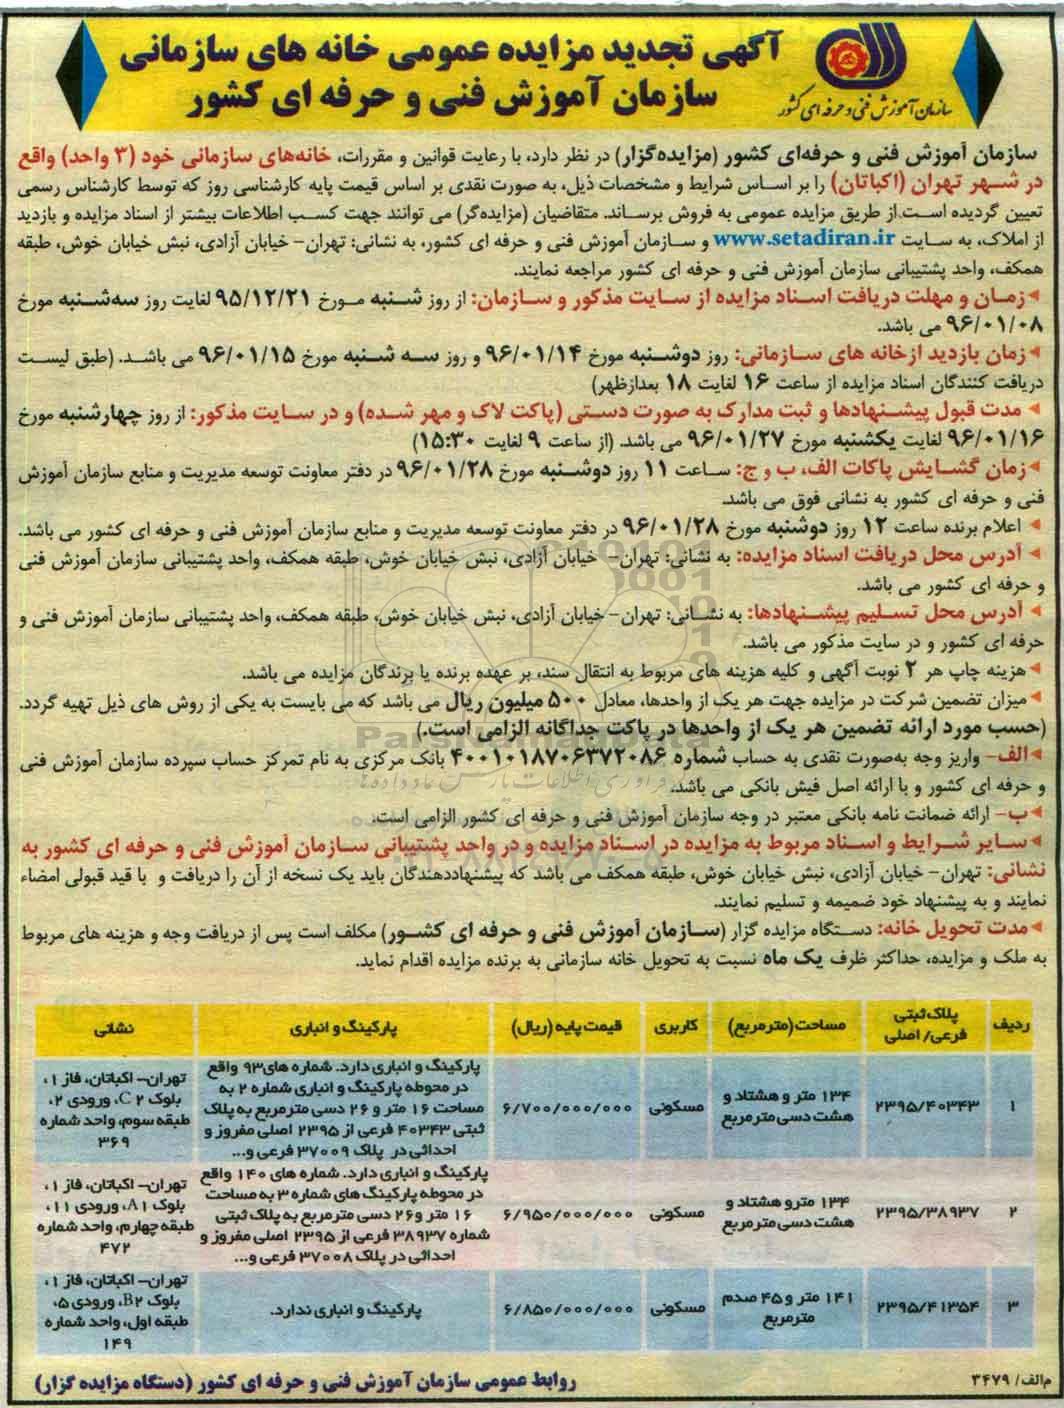 آگهی تجدید مزایده عمومی خانه های سازمانی
سازمان آموزش فنی و حرفه ای کشور
سازمان آموزش فنی و حرفه ای کشور
سازمان آموزش فنی و حرفه‌ای کشور (مزایده‌گزار) در نظر دارد، با رعایت قوانین و مقررات، خانه‌های سازمانی خود (۳ واحد) واقع
در شهر تهران (اکباتان) را بر اساس شرایط و مشخصات ذیل، به صورت نقدی بر اساس قیمت پایه کارشناسی روز که توسط کارشناس رسمی
تعیین گردیده است از طریق مزایده عمومی به فروش برساند. متقاضیان (مزایده‌گر) می توانند جهت کسب اطلاعات بیشتر از اسناد مزایده و بازدید
از املاک، به سایت www.setadiran.ir و سازمان آموزش فنی و حرفه ای کشور، به نشانی: تهران- خیابان آزادی، نبش خیابان خوش، طبقه
همکف، واحد پشتیبانی سازمان آموزش فنی و حرفه ای کشور مراجعه نمایند.
زمان و مهلت دریافت اسناد مزایده از سایت مذکور و سازمان: از روز شنبه مورخ ۹۵/۱۲/۲۱ لغایت روز سه‌شنبه مورخ
۹۶/۰۱/۰۸ می باشد.
زمان بازدید از خانه های سازمانی: روز دوشنبه مورخ ۹۶/۰۱/۱۴ و روز سه شنبه مورخ ۹۶/۰۱/۱۵ می باشد. (طبق لیست
دریافت کنندگان اسناد مزایده از ساعت ۱۶ لغایت ۱۸ بعدازظهر)
مدت قبول پیشنهادها و ثبت مدارک به صورت دستی (پاکت لاک و مهر شده) و در سایت مذکور: از روز چهارشنبه مورخ
۹۶/۰۱/۱۶ لغایت یکشنبه مورخ ۹۶/۰۱/۲۷ می باشد. (از ساعت ۹ لغایت ۱۵:۳۰)
زمان گشایش پاکات الف، ب و ج: ساعت ۱۱ روز دوشنبه مورخ ۹۶/۰۱/۲۸ در دفتر معاونت توسعه مدیریت و منابع سازمان آموزش
فنی و حرفه ای کشور به نشانی فوق می باشد.
اعلام برنده ساعت ۱۲ روز دوشنبه مورخ ۹۶/۰۱/۲۸ در دفتر معاونت توسعه مدیریت و منابع سازمان آموزش فنی و حرفه ای کشور می باشد.
آدرس محل دریافت اسناد مزایده: به نشانی: تهران- خیابان آزادی، نبش خیابان خوش، طبقه همکف، واحد پشتیبانی سازمان آموزش فنی
و حرفه ای کشور می باشد.
آدرس محل تسلیم پیشنهادها: به نشانی: تهران- خیابان آزادی، نبش خیابان خوش، طبقه همکف، واحد پشتیبانی سازمان آموزش فنی و
حرفه ای کشور و در سایت مذکور می باشد.
هزینه چاپ هر ۲ نوبت آگهی و کلیه هزینه های مربوط به انتقال سند، بر عهده برنده یا برندگان مزایده می باشد.
میزان تضمین شرکت در مزایده جهت هر یک از واحدها، معادل ۵۰۰ میلیون ریال می باشد که می بایست به یکی از روش های ذیل تهیه گردد.
(حسب مورد ارائه تضمین هر یک از واحدها در پاکت جداگانه الزامی است.)
الف- واریز وجه به‌صورت نقدی به حساب شماره ۴۰۰۱۰۱۸۷۰۶۳۷۲۰۸۶ بانک مرکزی به نام تمرکز حساب سپرده سازمان آموزش فنی
و حرفه ای کشور و با ارائه اصل فیش بانکی می باشد.
ب- ارائه ضمانت نامه بانکی معتبر در وجه سازمان آموزش فنی و حرفه ای کشور الزامی است.
سایر شرایط و اسناد مربوط به مزایده در اسناد مزایده و در واحد پشتیبانی سازمان آموزش فنی و حرفه ای کشور به
نشانی: تهران- خیابان آزادی، نبش خیابان خوش، طبقه همکف می باشد که پیشنهاددهندگان باید یک نسخه از آن را دریافت و با قید قبولی امضاء
نمایند و به پیشنهاد خود ضمیمه و تسلیم نمایند.
مدت تحویل خانه: دستگاه مزایده گزار (سازمان آموزش فنی و حرفه ای کشور) مکلف است پس از دریافت وجه و هزینه های مربوط
به ملک و مزایده، حداکثر ظرف یک ماه نسبت به تحویل خانه سازمانی به برنده مزایده اقدام نماید.
ردیف | پلاک ثبتی فرعی/ اصلی | مساحت (مترمربع) | کاربری | قیمت پایه (ریال) | پارکینگ و انباری | نشانی
۱ | ۲۳۹۵/۴۰۳۴۳ | ۱۳۴ متر و هشتاد و هشت دسی مترمربع | مسکونی | ۶/۷۰۰/۰۰۰/۰۰۰ | پارکینگ و انباری دارد. شماره های ۹۳ واقع در محوطه پارکینگ و انباری شماره ۲ به مساحت ۱۶ متر و ۲۶ دسی مترمربع به پلاک ثبتی ۴۰۳۴۳ فرعی از ۲۳۹۵ اصلی مفروز و احداثی در پلاک ۳۷۰۰۹ فرعی و... | تهران- اکباتان، فاز ۱، بلوک C۲، ورودی ۲، طبقه سوم، واحد شماره ۳۶۹
۲ | ۲۳۹۵/۳۸۹۳۷ | ۱۳۴ مترو هشتاد و هشت دسی مترمربع | مسکونی | ۶/۹۵۰/۰۰۰/۰۰۰ | پارکینگ و انباری دارد. شماره های ۱۴۰ واقع در محوطه پارکینگ های شماره ۳ به مساحت ۱۶ متر و۲۶ دسی مترمربع به پلاک ثبتی شماره ۳۸۹۳۷ فرعی از ۲۳۹۵ اصلی مفروز و احداثی در پلاک ۳۷۰۰۸ فرعی و... | تهران- اکباتان، فاز ۱، بلوک A۱، ورودی ۱۱، طبقه چهارم، واحد شماره ۴۷۲
۳ | ۲۳۹۵/۴۱۳۵۴ | ۱۴۱ متر و ۴۵ صدم مترمربع | مسکونی | ۶/۸۵۰/۰۰۰/۰۰۰ | پارکینگ و انباری ندارد. | تهران- اکباتان، فاز ۱، بلوک B۲، ورودی ۵، طبقه اول، واحد شماره ۱۴۹
م الف/ ۳۴۷۹
روابط عمومی سازمان آموزش فنی و حرفه ای کشور (دستگاه مزایده گزار)